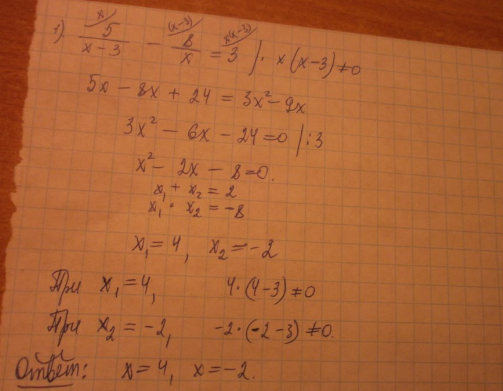 x (x-3) x(x-3)
1) 5/(x-3) - 8/x = 3 /· x(x-3)≠0
5x - 8x + 24 = 3x² - 9x
3x² - 6x - 24 = 0 /:3
x² - 2x - 8 = 0.
x₁ + x₂ = 2
x₁ · x₂ = -8
x₁ = 4, x₂ = -2
При x₁ = 4, 4·(4-3) ≠ 0
При x₂ = -2, -2·(-2-3) ≠ 0.
Ответ: x = 4, x = -2.